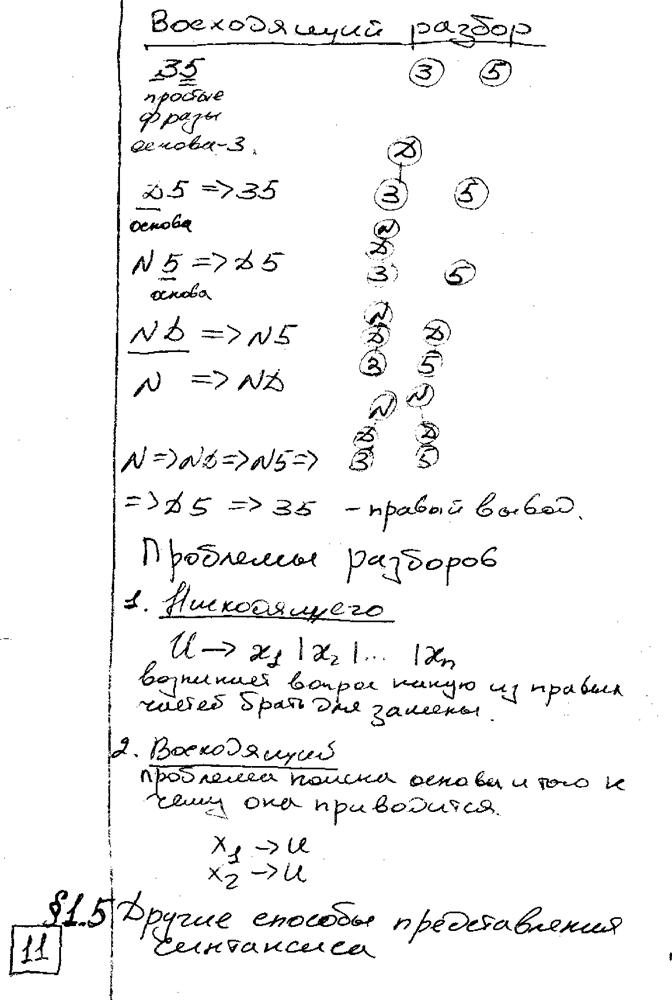 Восходящий разбор
35 3 5
простые
фразы
основа-3.
D
D5 => 35 3 5
основа
N
D
N5 => D5 3 5
основа
N
ND => N5 D D
3 5
N => ND
N N
D D
N => ND => N5 => 3 5
=> D5 => 35 - правый вывод.
Проблемы разборов
1. Нисходящего
U → x1 | x2 | ... | xn
возникает вопрос какую из правых
частей брать для замены.
2. Восходящий
проблема поиска основы и того к
чему она приводится.
x1 → U
x2 → U
§1.5 Другие способы представления
синтаксиса
11